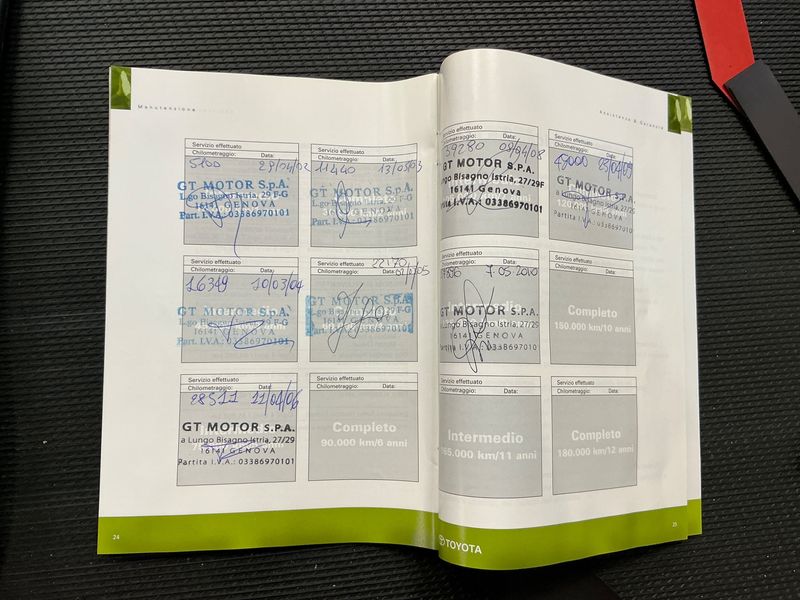 Manutenzione
Servizio effettuato
Chilometraggio: Data:
5100 29/04/02
GT MOTOR S.p.A.
L.go Bisagno Istria, 29 F-G
16141 GENOVA
Part. I.V.A.: 03386970101
Servizio effettuato
Chilometraggio: Data:
11440 13/03/03
GT MOTOR S.p.A.
L.go Bisagno Istria, 29 F-G
16141 GENOVA
Part. I.V.A.: 03386970101
Servizio effettuato
Chilometraggio: Data:
16349 10/03/04
GT MOTOR S.p.A.
L.go Bisagno Istria, 29 F-G
16141 GENOVA
Part. I.V.A.: 03386970101
Servizio effettuato 22170
Chilometraggio:
GT MOTOR S.p.A.
L.go Bisagno
16141 GENOVA
Part. I.V.A.: 03386970101
Servizio effettuato
Chilometraggio: Data:
28511 11/04/06
GT MOTOR S.P.A.
a Lungo Bisagno Istria, 27/29
16141 GENOVA
Partita I.V.A.: 03386970101
Servizio effettuato
Chilometraggio: Data:
Completo
90.000 km/6 anni
24
Assistenza & Garanzia
Servizio effettuato
Chilometraggio: Data:
39280 09/04/08
GT MOTOR S.P.A.
Lungo Bisagno Istria, 27/29F
16141 Genova
Partita I.V.A.: 03386970101
Servizio effettuato
Chilometraggio: Data:
49000 23/04/09
GT MOTOR S.P.A.
a Lungo Bisagno Istria, 27/29
16141 GENOVA
Partita I.V.A.: 03386970101
Servizio effettuato
Chilometraggio: Data:
7.05 2010
Intermedio
GT MOTOR S.P.A.
a Lungo Bisagno Istria, 27/29
16141 GENOVA
Partita I.V.A.: 03386970101
Servizio effettuato
Chilometraggio: Data:
Completo
150.000 km/10 anni
Servizio effettuato
Chilometraggio: Data:
Intermedio
165.000 km/11 anni
Servizio effettuato
Chilometraggio: Data:
Completo
180.000 km/12 anni
TOYOTA
25